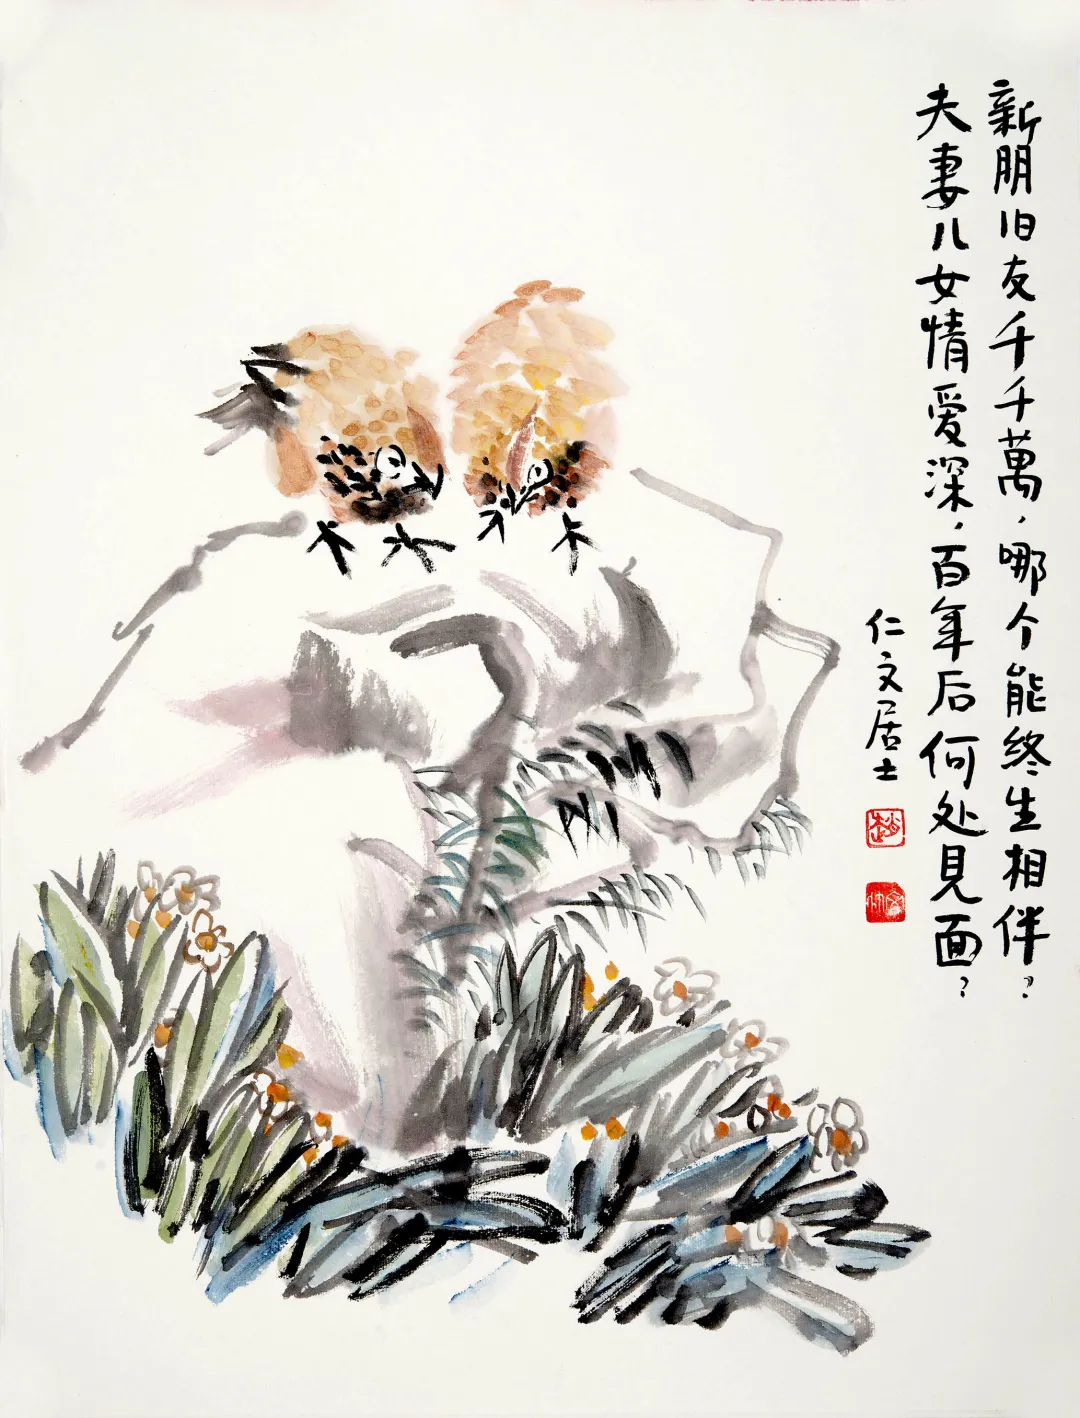 新朋旧友千千萬，哪个能终生相伴？
夫妻儿女情爱深，百年后何处見面？
仁文居士